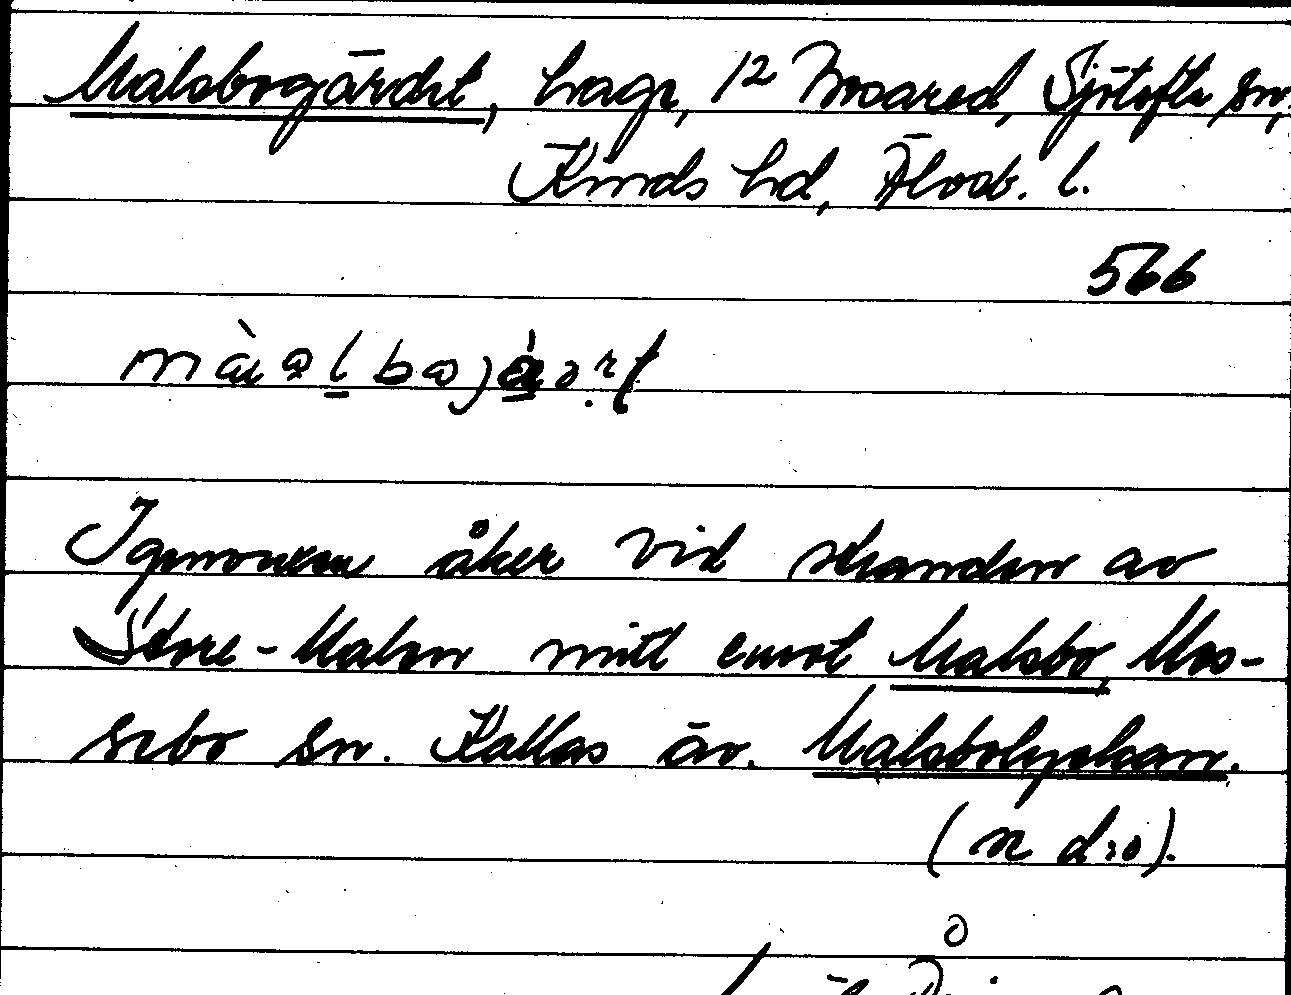 Malsbogärdet, hage, 12 Moared, Sjötofta sn,
Kinds hd, Älvsb. l.
566
Igenvuxen åker vid stranden av
Store-Malen mitt emot Malsbo, Mos-
sebo sn. Kallas äv. Malsbolyckan.
(se d:o).